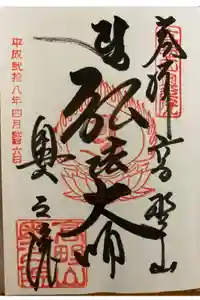 奉拝 高野山
弘法大師
奥之院
平成弐拾八年四月拾六日